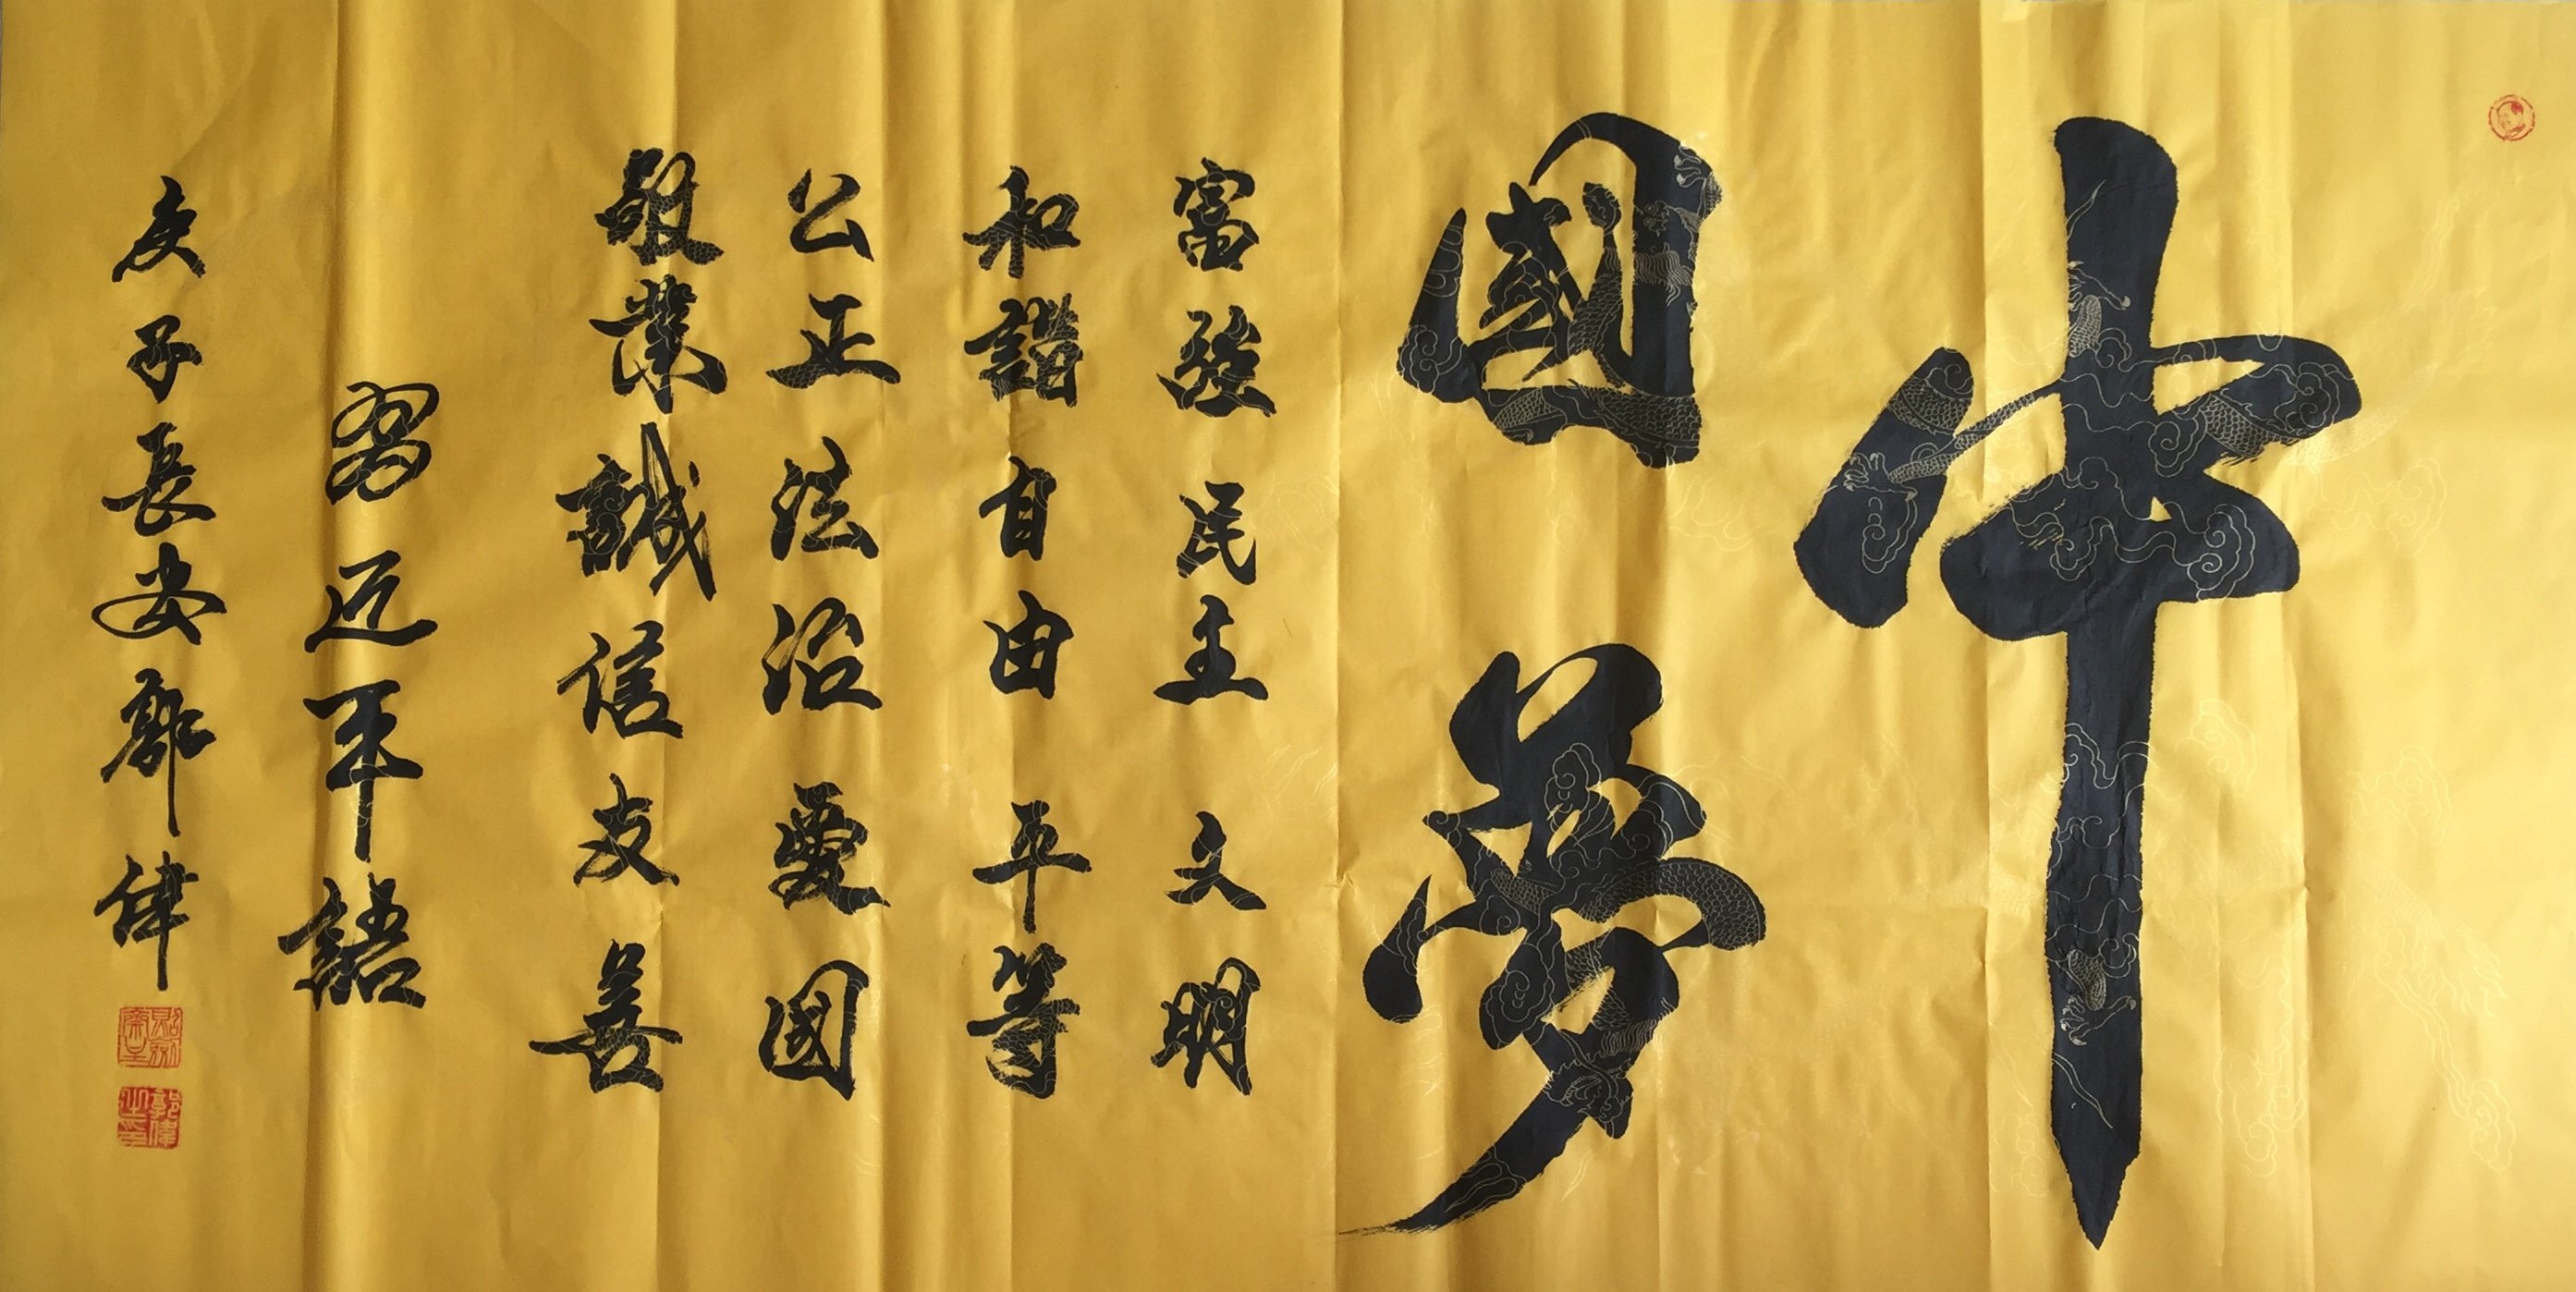 中
國夢
富強民主 文明
和諧自由 平等
公正法治 愛國
敬業誠信友善
習近平語
庚子長安郭偉
郭偉之印